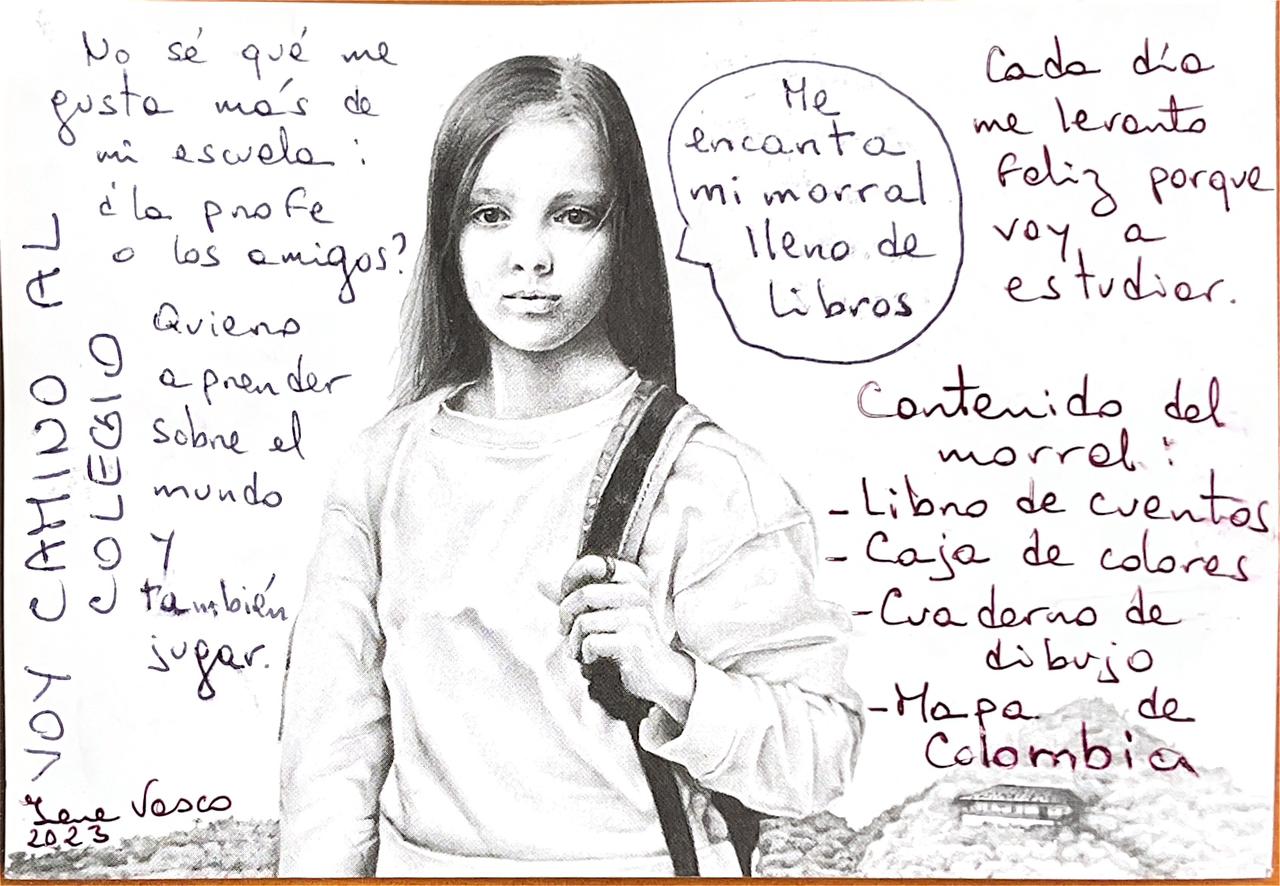 No sé qué me
gusta más de
mi escuela:
¿la profe
o los amigos?
Quiero
aprender
sobre el
mundo
y
también
jugar.
VOY CAMINO AL
COLEGIO
Me
encanta
mi morral
lleno de
libros
Cada día
me levanto
feliz porque
voy a
estudiar.
Contenido del
morral:
- Libro de cuentos
- Caja de colores
- Cuaderno de
dibujo
- Mapa de
Colombia
Irene Vasco
2023